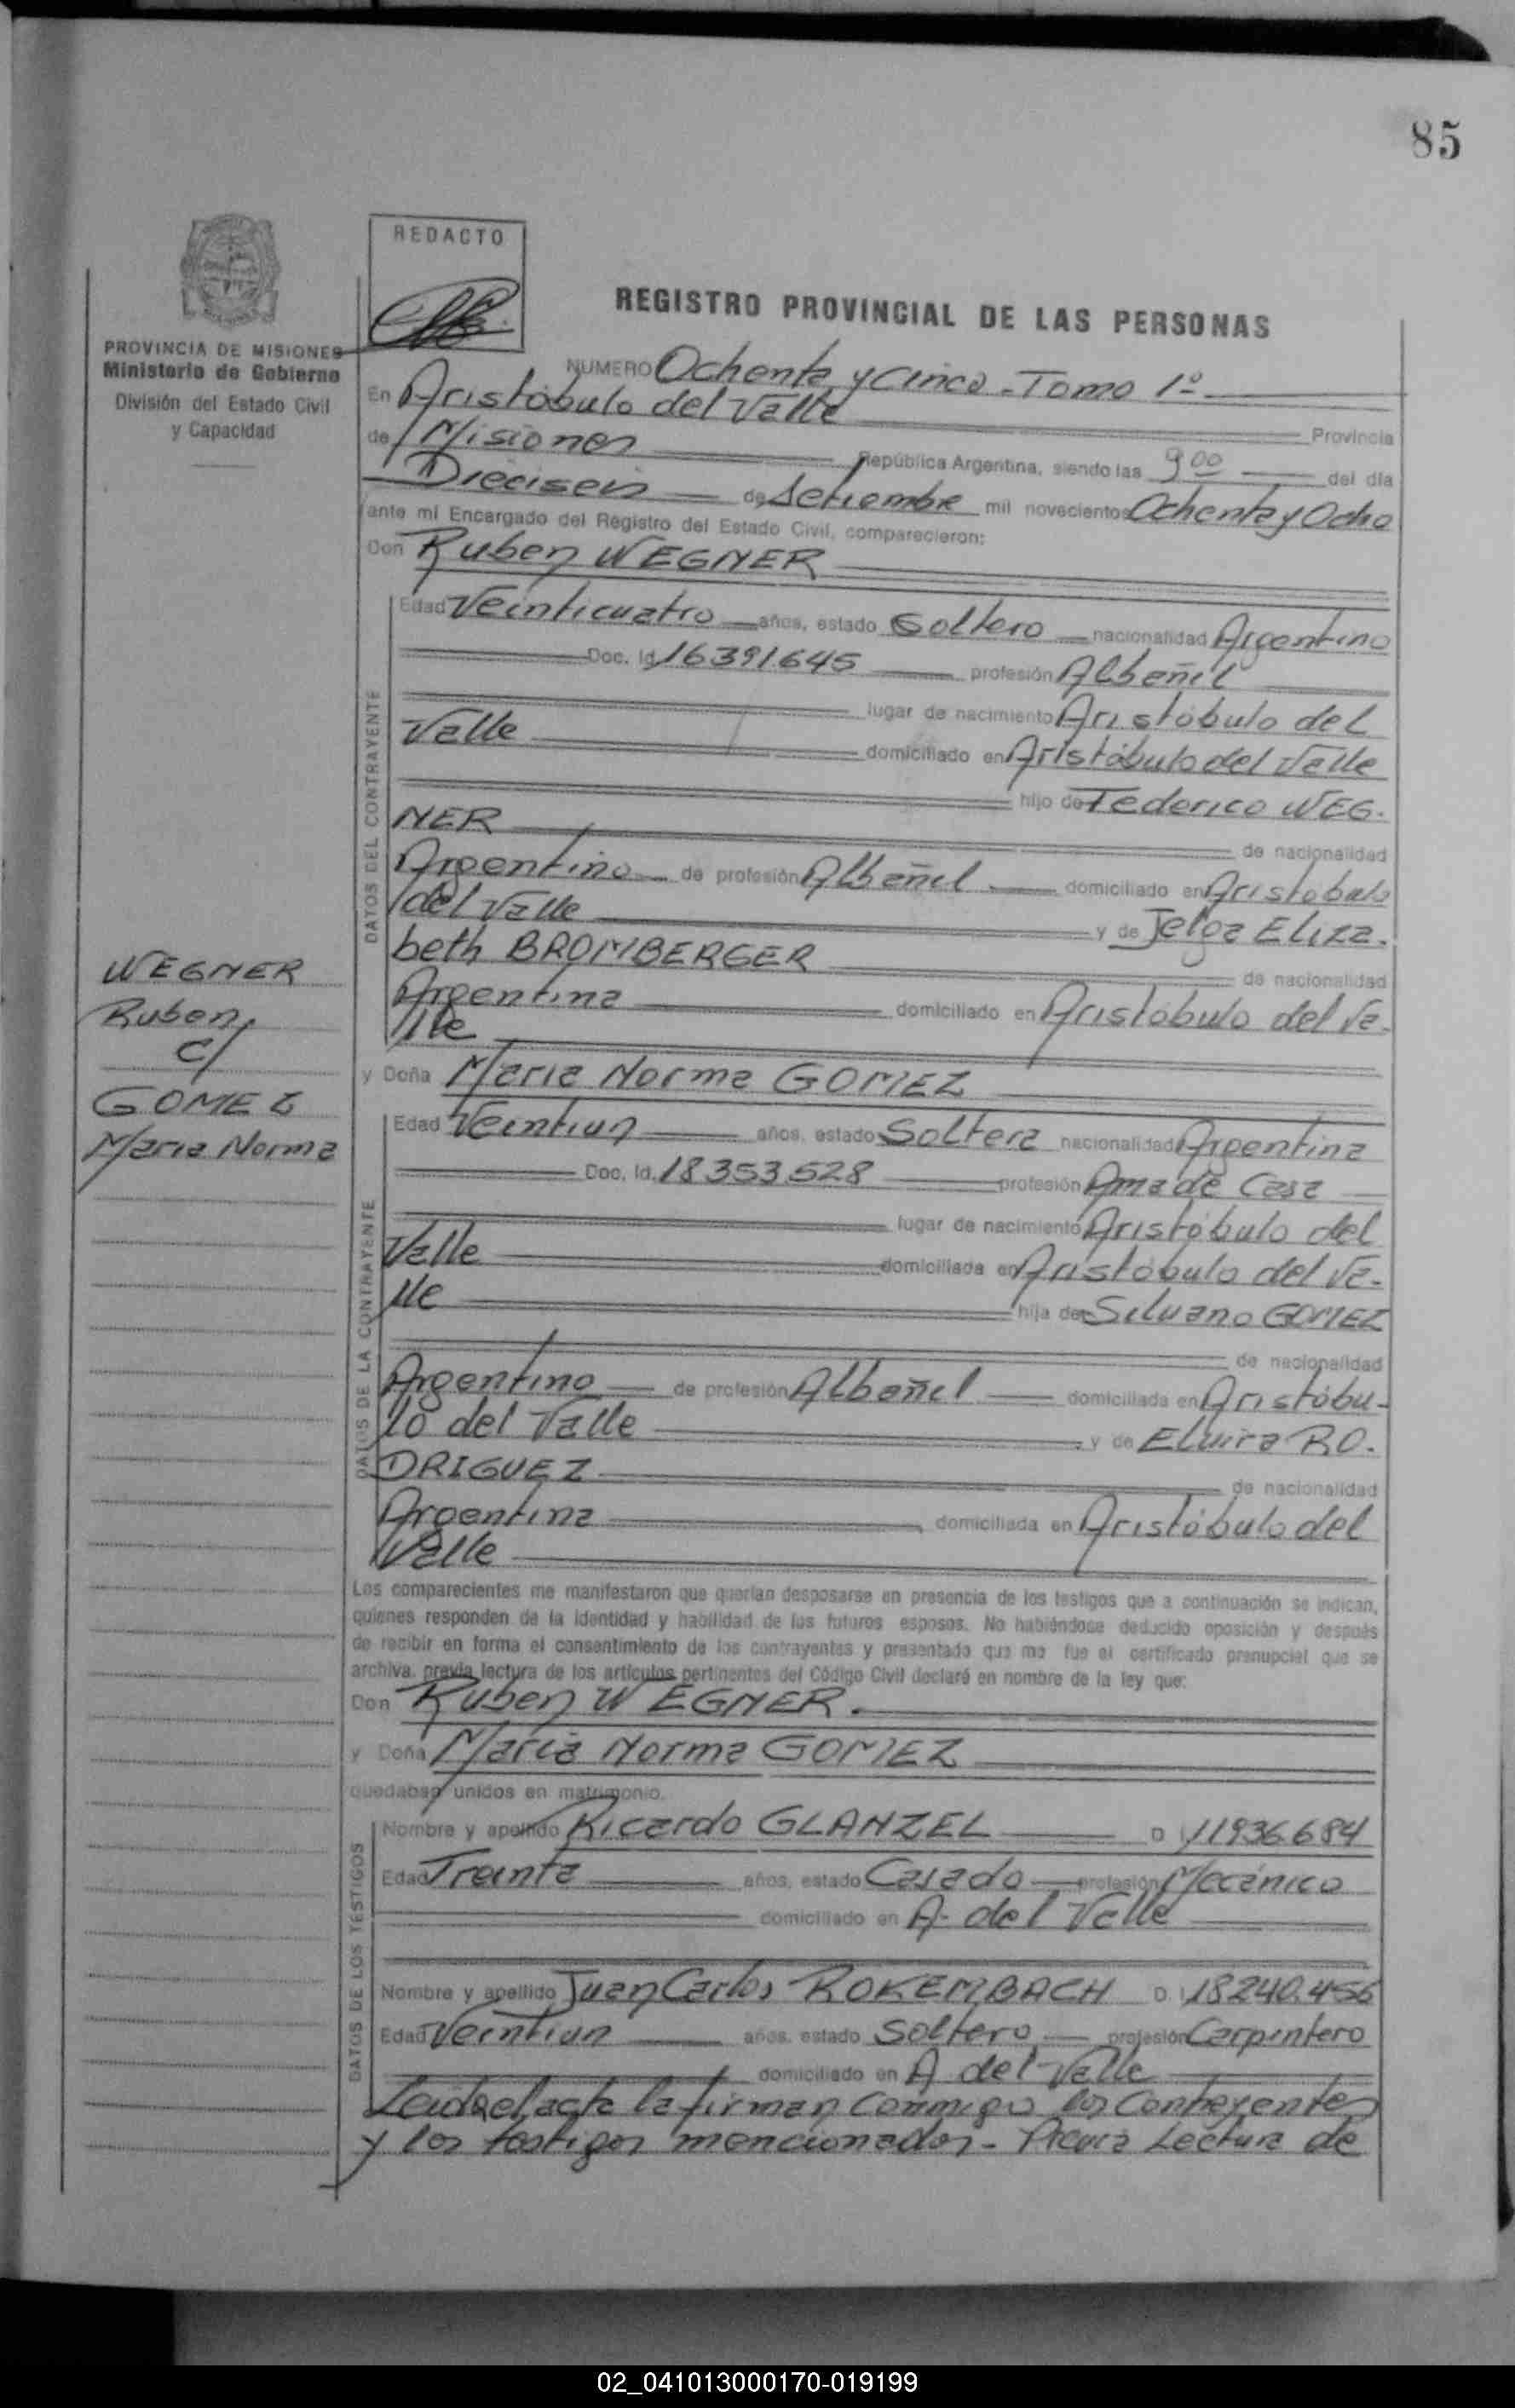 85
REDACTO
REGISTRO PROVINCIAL DE LAS PERSONAS
PROVINCIA DE MISIONES
Ministerio de Gobierno
División del Estado Civil
y Capacidad
NUMERO Ochenta y Cinco - Tomo 1º
En Aristóbulo del Valle Provincia
de Misiones República Argentina, siendo las 9 00 del día
Dieciseis de Setiembre mil novecientos Ochenta y Ocho
ante mi Encargado del Registro del Estado Civil, comparecieron:
Don Ruben WEGNER
Edad Veinticuatro años, estado Soltero nacionalidad Argentino
Doc. Id. 16391.645 profesión Albañil
lugar de nacimiento Aristóbulo del
Valle domiciliado en Aristóbulo del Valle
hijo de Federico WEG-
NER de nacionalidad
Argentino de profesión Albañil domiciliado en Aristobulo
del Valle y de Jelga Eliza-
beth BROMBERGER de nacionalidad
Argentina domiciliado en Aristóbulo del Va-
lle
y Doña Maria Norma GOMEZ
Edad Veintiun años, estado Soltera nacionalidad Argentina
Doc. Id. 18353.528 profesión Ama de Casa
lugar de nacimiento Aristóbulo del
Valle domiciliada en Aristóbulo del Va-
lle hija de Silvano GOMEZ
de nacionalidad
Argentino de profesión Albañil domiciliada en Aristóbu-
lo del Valle y de Elvira RO-
DRIGUEZ de nacionalidad
Argentina domiciliada en Aristóbulo del
Valle
DATOS DEL CONTRAYENTE
DATOS DE LA CONTRAYENTE
WEGNER
Ruben
c/
GOMEZ
Maria Norma
Los comparecientes me manifestaron que querían desposarse en presencia de los testigos que a continuación se indican,
quienes responden de la identidad y habilidad de los futuros esposos. No habiéndose deducido oposición y después
de recibir en forma el consentimiento de los contrayentes y presentado que me fue el certificado prenupcial que se
archiva, previa lectura de los artículos pertinentes del Código Civil declaré en nombre de la ley que:
Don Ruben WEGNER.
y Doña Maria Norma GOMEZ
quedaban unidos en matrimonio.
DATOS DE LOS TESTIGOS
Nombre y apellido Ricardo GLANZEL D I 11936.684
Edad Treinta años, estado Casado profesión Mecánico
domiciliado en A. del Valle
Nombre y apellido Juan Carlos ROKEMBACH D. I 18240.456
Edad Veintiun años, estado Soltero profesión Carpintero
domiciliado en A del Valle
Leida el acta la firman conmigo los Contrayentes
y los testigos mencionados - Previa Lectura de
02_041013000170-019199